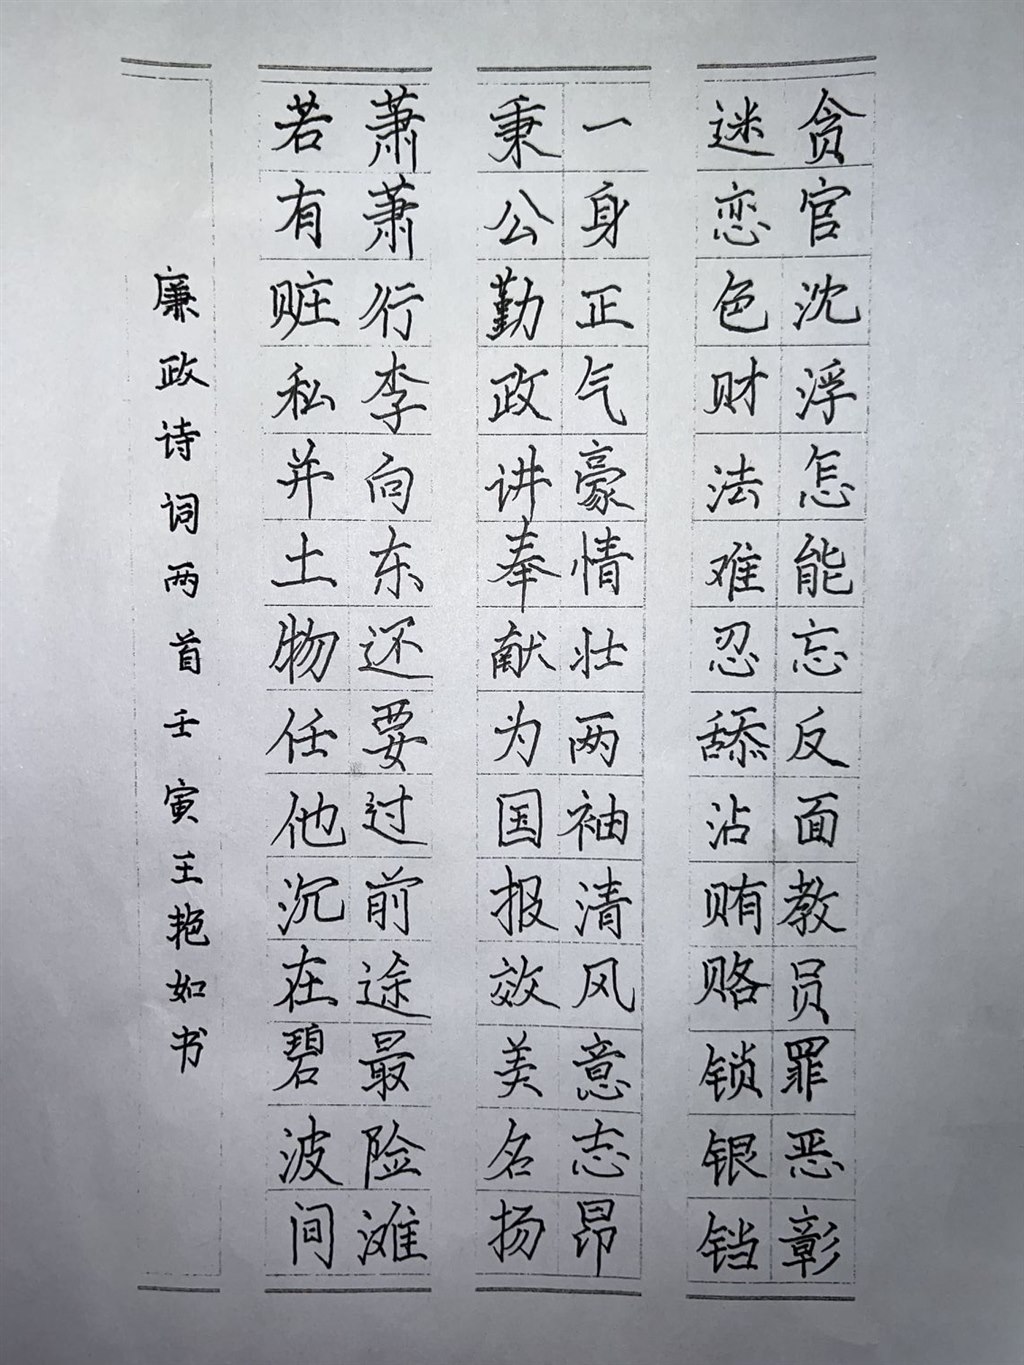 贪官沈浮怎能忘反面教员罪恶彰
迷恋色财法难忍舔沾贿赂锁银铛
一身正气豪情壮两袖清风意志昂
秉公勤政讲奉献为国报效美名扬
萧萧行李向东还要过前途最险滩
若有赃私并土物任他沉在碧波间
廉政诗词两首壬寅王艳如书